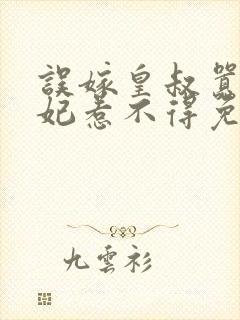 誤嫁皇叔囂
妃惹不得免
九雲衫